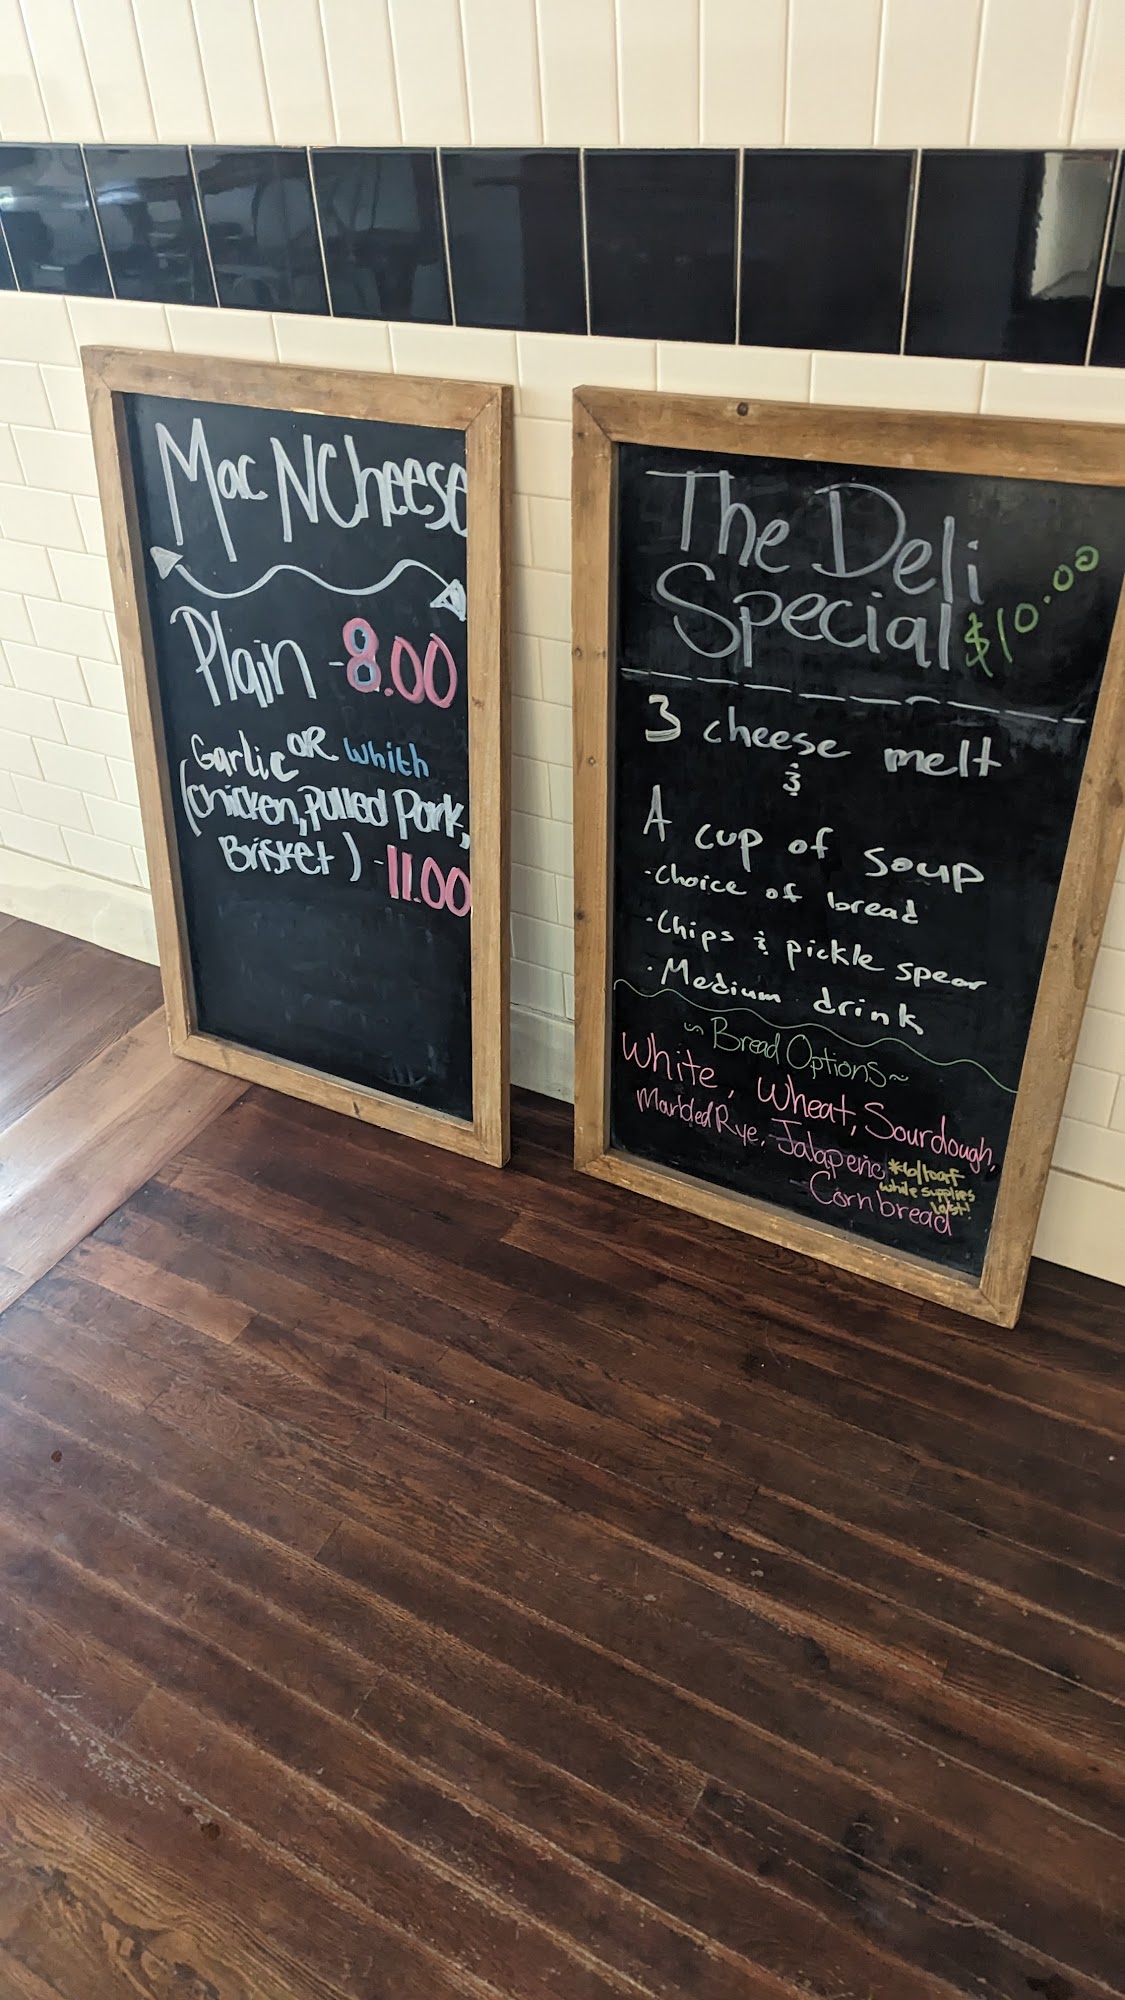 Mac N Cheese
Plain - 8.00
Garlic OR Whith
(Chicken, Pulled Pork,
Brisket) - 11.00
The Deli
Special $10.00
3 cheese melt
&
A cup of soup
- Choice of bread
- Chips & pickle spear
- Medium drink
~ Bread Options ~
White, Wheat, Sourdough,
Marbled Rye, Jalapeno
Cornbread
*6/loaf
while supplies
last!